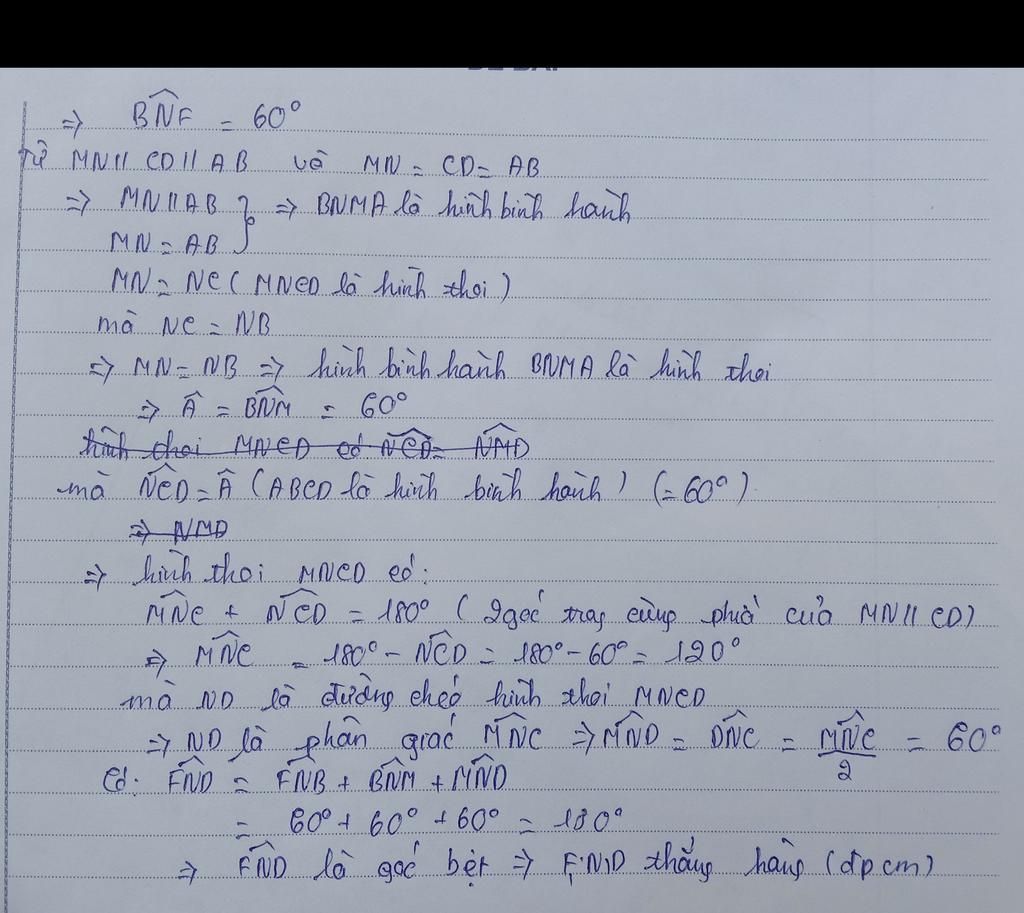 ⇒ BN̂F = 60°
Từ MN // CD // AB và MN = CD = AB
⇒ MN // AB } ⇒ BNMA là hình bình hành
MN = AB
MN = NC ( MNCD là hình thoi )
mà NC = NB
⇒ MN = NB ⇒ hình bình hành BNMA là hình thoi
⇒ Â = BN̂M = 60°
hình thoi MNCD có NĈD = NM̂D
mà NĈD = Â (ABCD là hình bình hành) (= 60°).
⇒ NMD
⇒ hình thoi MNCD có:
MN̂C + NĈD = 180° ( 2 góc trog cùng phía của MN // CD)
⇒ MN̂C = 180° - NĈD = 180° - 60° = 120°
mà ND là đường chéo hình thoi MNCD
⇒ ND là phân giác MN̂C ⇒ MN̂D = DN̂C = MN̂C/2 = 60°
Có: FN̂D = FN̂B + BN̂M + MN̂D
= 60° + 60° + 60° = 180°
⇒ FN̂D là góc bẹt ⇒ F,N,D thẳng hàng (đpcm)